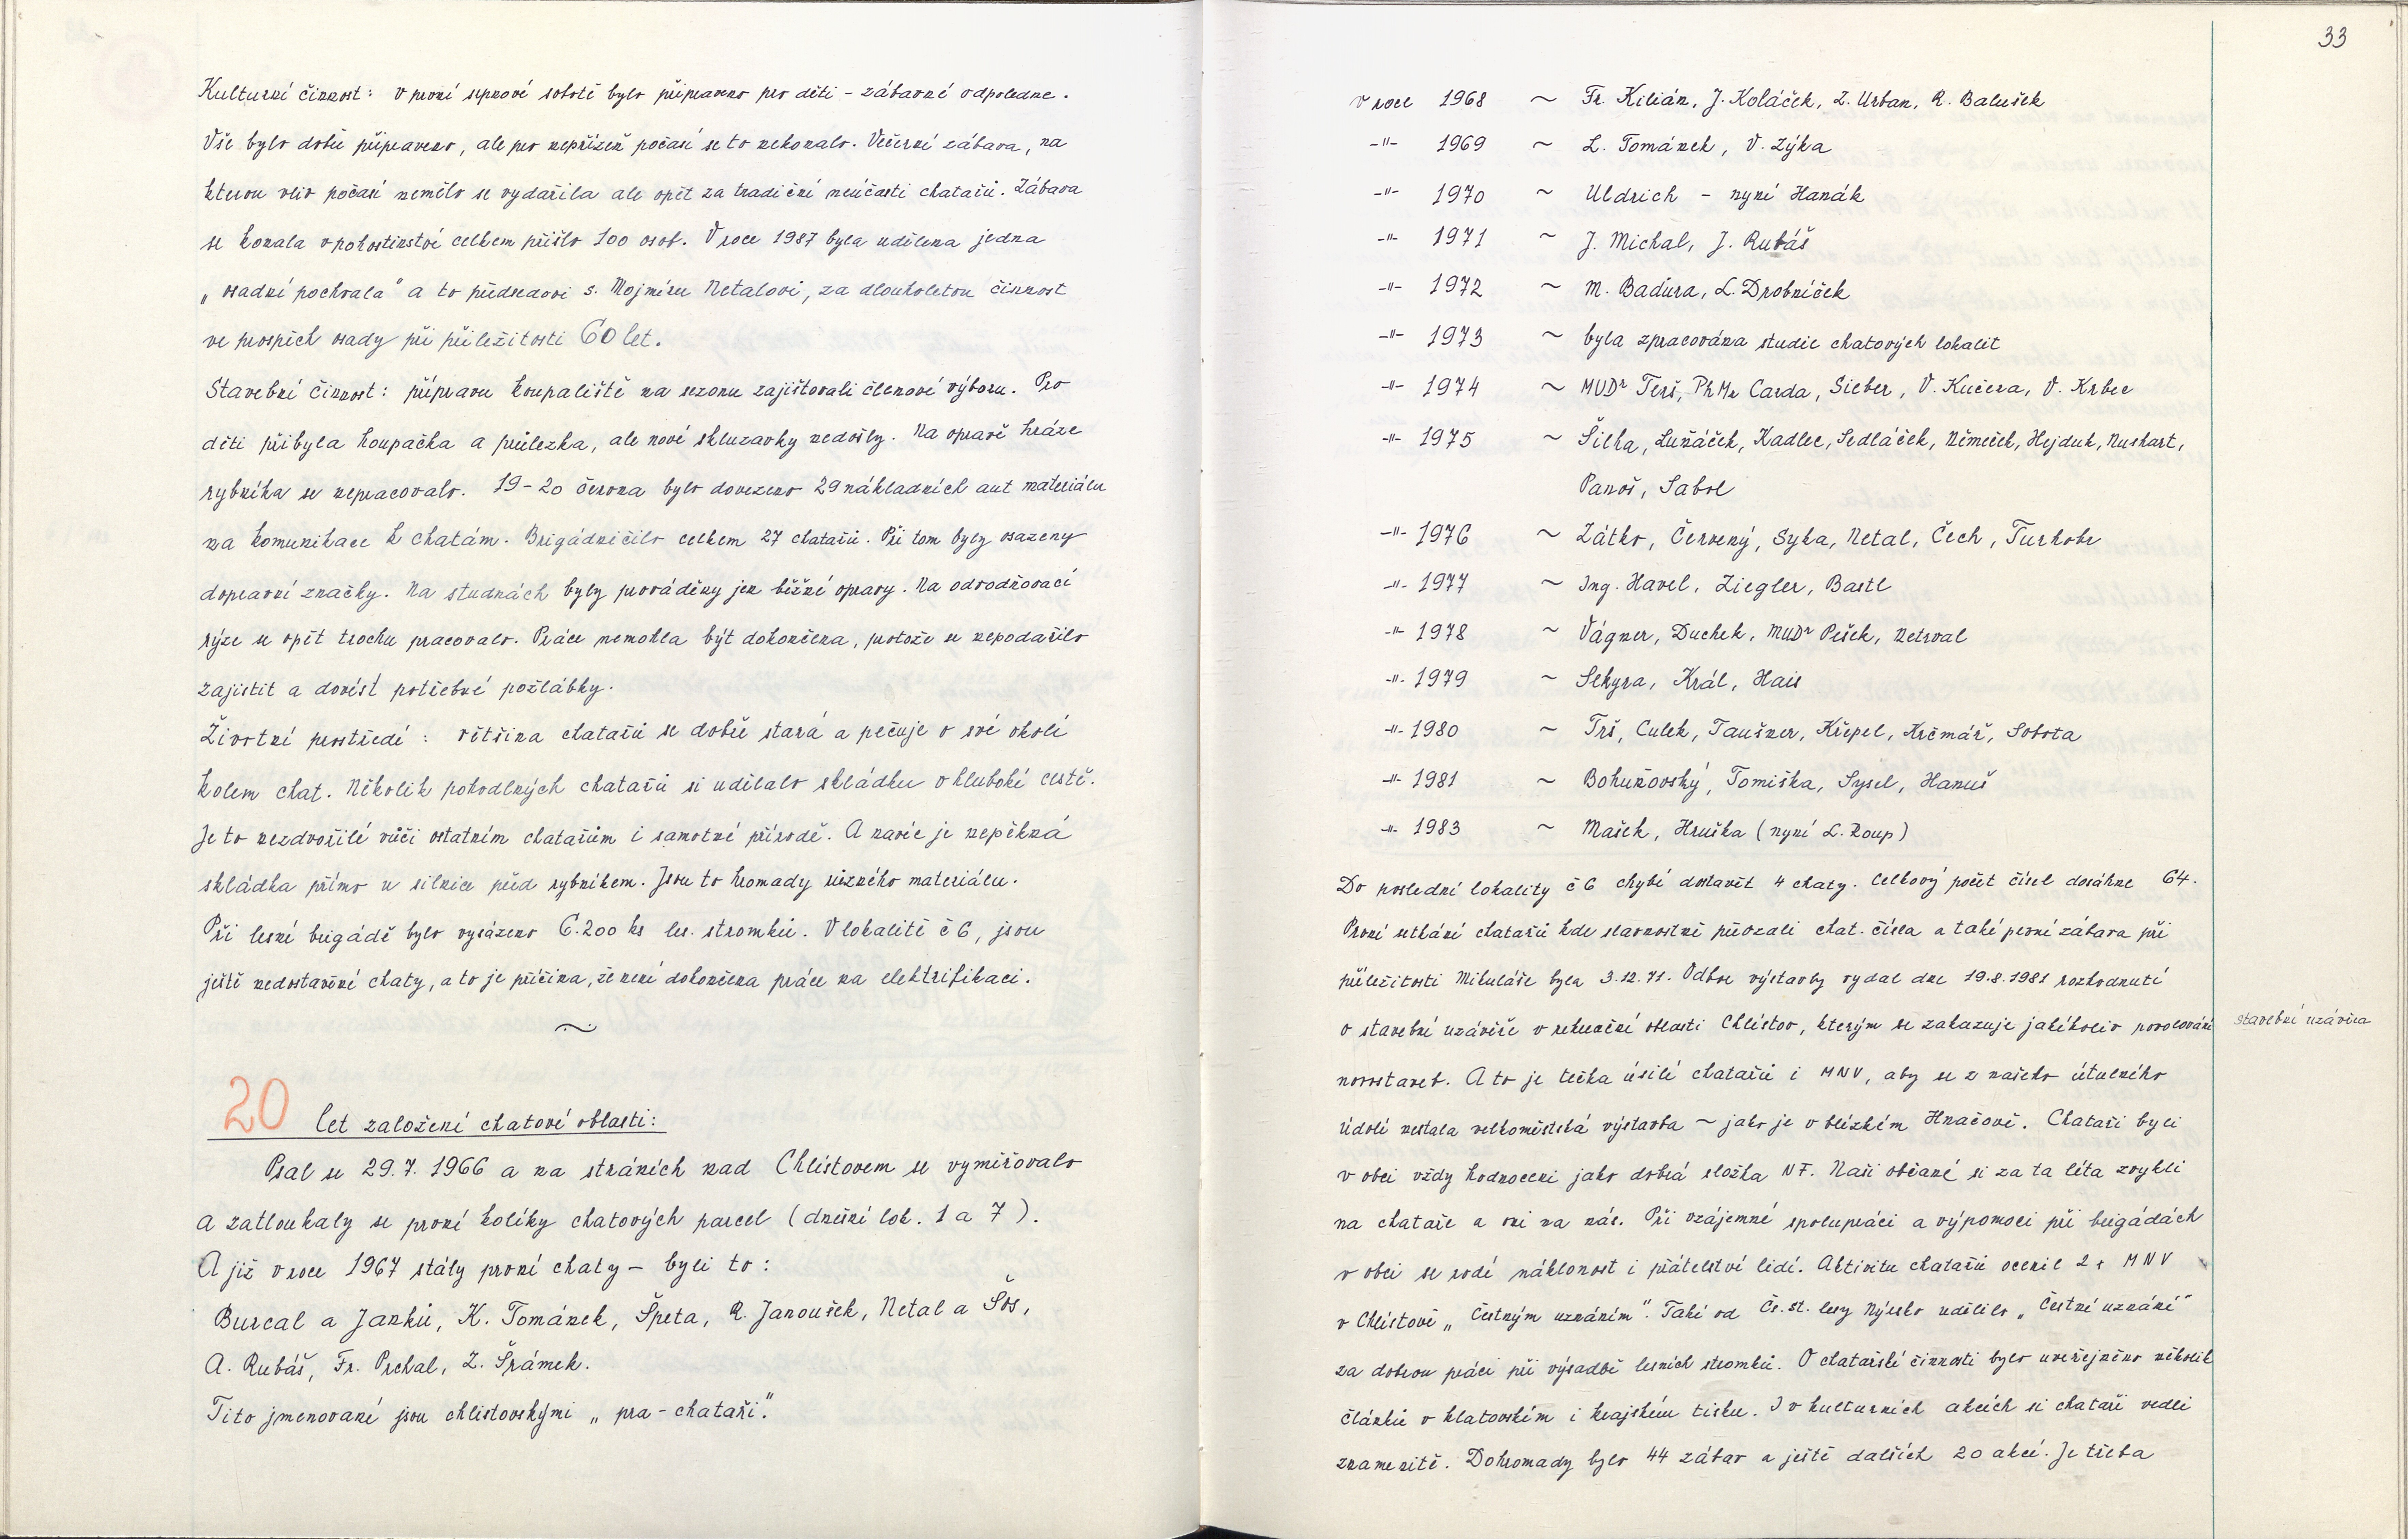 Kulturní činnost: v první srpnové sobotě bylo připraveno pro děti – zábavné odpoledne.
Vše bylo dobře připraveno, ale pro nepřízeň počasí se to nekonalo. Večerní zábava, na
kterou vliv počasí nemělo se vydařila ale opět za tradiční neúčasti chatařů. Zábava
se konala v pohostinství celkem přišlo 100 osob. V roce 1987 byla udělena jedna
„osadní pochvala" a to předsedovi s. Mojmíru Netalovi, za dlouholetou činnost
ve prospěch osady při příležitosti 60 let.
Stavební činnost: přípravu koupaliště na sezonu zajišťovali členové výboru. Pro
děti přibyla houpačka a průlezka, ale nové skluzavky nedošly. Na opravě hráze
rybníka se nepracovalo. 19–20 června bylo dovezeno 29 nákladních aut materiálu
na komunikace k chatám. Brigádničilo celkem 27 chatařů. Při tom byly osazeny
dopravní značky. Na studnách byly prováděny jen běžné opravy. Na odvodňovací
rýze se opět trochu pracovalo. Práce nemohla být dokončena, protože se nepodařilo
zajistit a dovést potřebné požlábky.
Životní prostředí: většina chatařů se dobře stará a pečuje o své okolí
kolem chat. Několik pohodlných chatařů si udělalo skládku v hluboké cestě.
Je to nezdvořilé vůči ostatním chatařům i samotné přírodě. A navíc je nepěkná
skládka přímo u silnice před rybníkem. Jsou to hromady různého materiálu.
Při lesní brigádě bylo vysázeno 6.200 ks les. stromků. V lokalitě č 6, jsou
ještě nedostavěné chaty, a to je příčina, že není dokončena práce na elektrifikaci.
~
20 let založení chatové oblasti:
Psal se 29.7.1966 a na stráních nad Chlistovem se vyměřovalo
a zatloukaly se první kolíky chatových parcel (dnešní lok. 1 a 7).
A již v roce 1967 stály první chaty – byli to:
Burcal a Janků, K. Tománek, Špeta, R. Janoušek, Netal a Šos,
A. Rubáš, Fr. Prchal, Z. Šrámek.
Tito jmenované jsou chlistovskými „pra-chataři."
33
v roce 1968 ~ Fr. Kilián, J. Koláček, Z. Urban, R. Balušek
-"- 1969 ~ L. Tománek, V. Zýka
-"- 1970 ~ Uldrich – nyní Hanák
-"- 1971 ~ J. Michal, J. Rubáš
-"- 1972 ~ M. Baďura, L. Drobníček
-"- 1973 ~ byla zpracována studie chatových lokalit
-"- 1974 ~ MUDr Terš, PhMr Carda, Sieber, V. Kučera, V. Krbec
-"- 1975 ~ Šilha, Luňáček, Kadlec, Sedláček, Němeček, Hejduk, Nuskart,
Panoš, Sabol
-"- 1976 ~ Zátko, Červený, Syka, Netal, Čech, Turkobr
-"- 1977 ~ Ing. Havel, Ziegler, Bastl
-"- 1978 ~ Vágner, Duchek, MUDr Pešek, Netrval
-"- 1979 ~ Sekyra, Král, Hais
-"- 1980 ~ Trš, Culek, Taušner, Křepel, Krčmář, Sobota
-"- 1981 ~ Bohuňovský, Tomiška, Sysel, Hanuš
-"- 1983 ~ Mašek, Hruška (nyní L. Roup)
Do poslední lokality č 6 chybí dostavět 4 chaty. Celkový počet čísel dosáhne 64.
První setkání chatařů kde slavnostně převzali chat. čísla a také první zábava při
příležitosti Mikuláše byla 3.12.71. Odbor výstavby vydal dne 19.8.1981 rozhodnutí
o stavební uzávěře v rekreační oblasti Chlistov, kterým se zakazuje jakékoliv povolování
stavební uzávěra
novostaveb. A to je tečka úsilí chatařů i MNV, aby se z našeho útulného
údolí nestala velkoměstská výstavba ~ jako je v blízkém Hnačově. Chataři byli
v obci vždy hodnoceni jako dobrá složka NF. Naši občané si za ta léta zvykli
na chataře a oni na nás. Při vzájemné spolupráci a výpomoci při brigádách
v obci se rodí náklonost i přátelství lidí. Aktivitu chatařů ocenil 2x MNV
v Chlistově „Čestným uznáním". Také od Čs.st. lesy Nýrsko udělilo „Čestné uznání"
za dobrou práci při výsadbě lesních stromků. O chatařské činnosti bylo uveřejněno několik
článků v klatovském i krajském tisku. I v kulturních akcích si chataři vedli
znamenitě. Dohromady bylo 44 zábav a ještě dalších 20 akcí. Je třeba